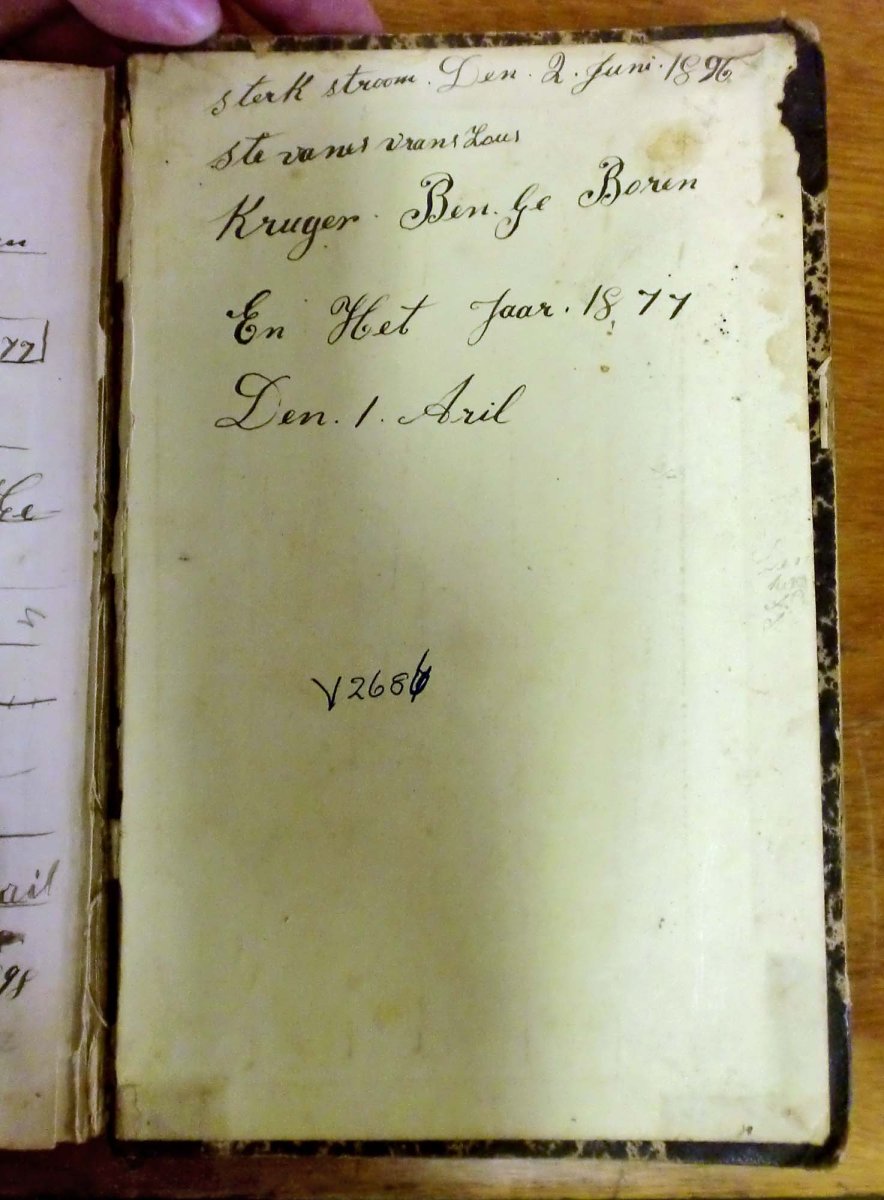 sterk stroom. Den. 2. Juni. 1896
ste vanes vrans Lous
Kruger. Ben. Ge Boren
En Het Jaar. 1877
Den. 1. Aril
V2686
77
ril
98